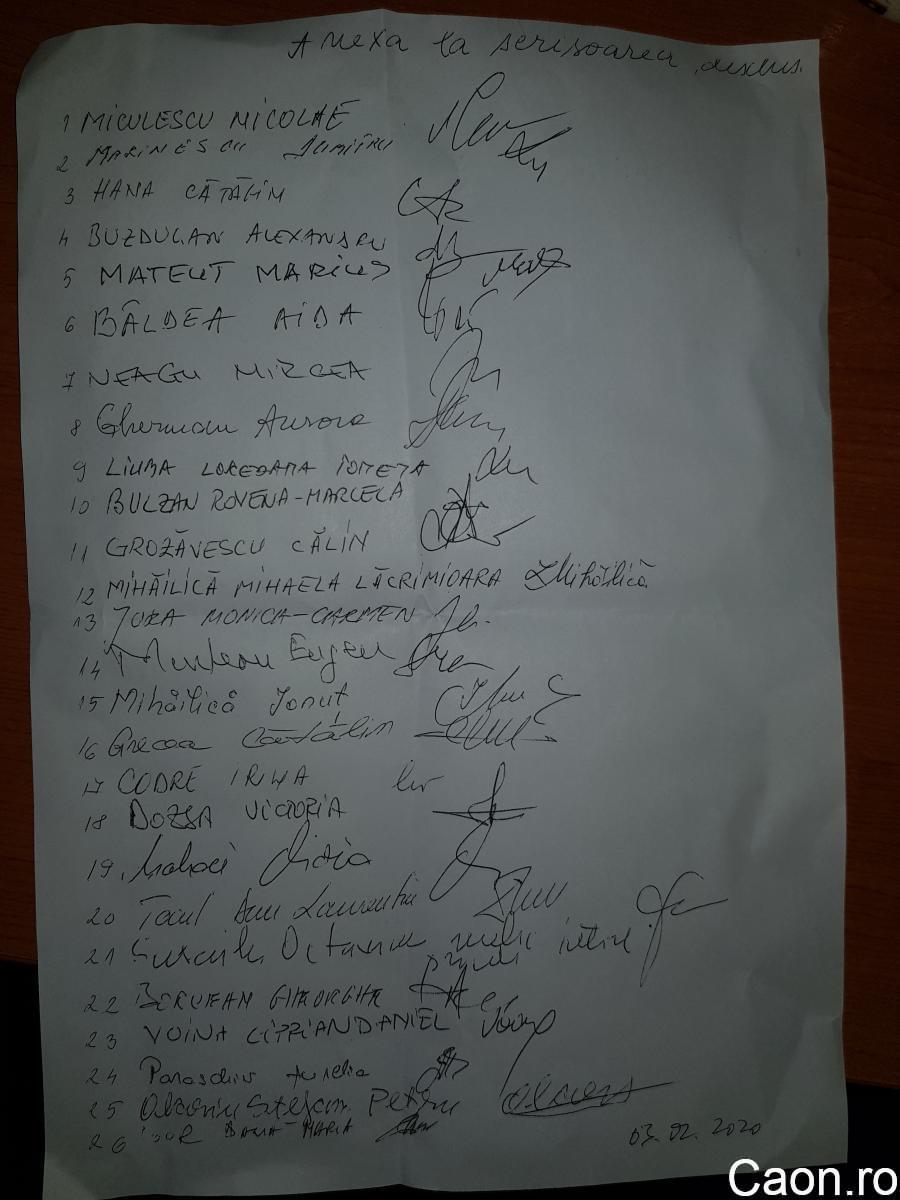 Anexa la scrisoarea
1 MICULESCU NICOLAE
2 MARINESCU DUMITRU
3 HANA CĂTĂLIN
4 BUZDUGAN ALEXANDRU
5 MATEUT MARIUS
6 BÂLDEA AIDA
7 NEAGU MIRCEA
8 Gherman Aurora
9 LIUBA LOREDANA IONEȚA
10 BULZAN ROVENA-MARCELA
11 GROZĂVESCU CĂLIN
12 MIHĂILICĂ MIHAELA LĂCRIMIOARA Mihăilică
13 JURA MONICA-CARMEN
14 Munteanu Eugen
15 Mihăilică Ionuț
16 Grecea Cătălin
17 CODRE IRINA
18 DOZSA VICTORIA
19
20 Laurentiu
21 Octavian
22 GHEORGHE
23 VOINA CIPRIAN DANIEL
24 Paraschiv Aurelia
25 Stefan Petru
26 MARIA
03.02.2020
Caon.ro